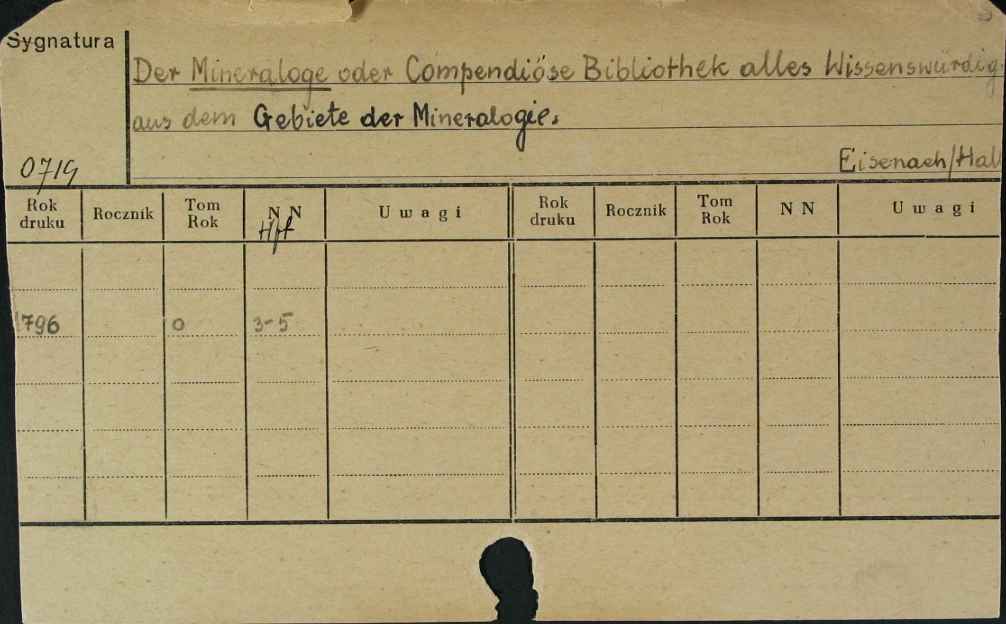 Sygnatura
Der Mineraloge oder Compendiöse Bibliothek alles Wissenswürdig
aus dem Gebiete der Mineralogie.
0719 Eisenach/Hal
Rok druku Rocznik Tom Rok N N Hft Uwagi Rok druku Rocznik Tom Rok N N Uwagi
1796 0 3-5